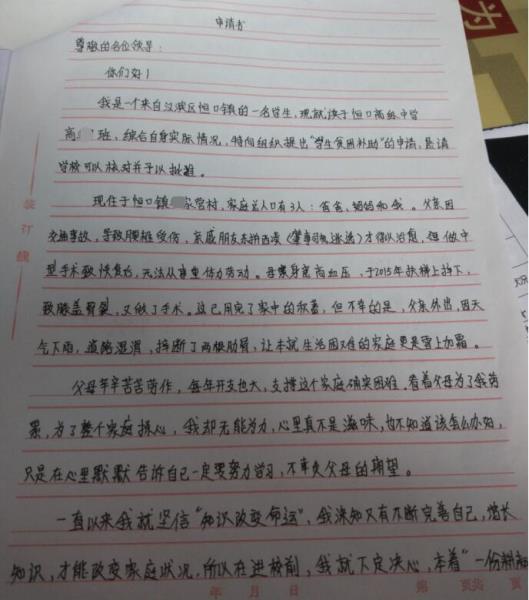 申请书
尊敬的各位领导：
你们好！
我是一个来自汉滨区恒口镇的一名学生，现就读于恒口高级中学
高 班、综合自身实际情况，特向组织提出“学生贫困补助”的申请，恳请
学校可以核对并予以批准。
现住于恒口镇 家营村，家庭总人口有3人：爸爸、妈妈和我。父亲因
交通事故，导致腰椎受伤，亲戚朋友东拼西凑（肇事司机逃逸）才得以治愈，但做中
型手术致恢复力，无法从事重体力劳动。母亲身患高血压，于2015年扶梯上掉下，
致膝盖骨裂，又做了手术。这已用完了家中的积蓄，但不幸的是，父亲外出，因天
气下雨，道路湿滑，摔断了两根肋骨，让本就生活困难的家庭更是雪上加霜。
父母辛辛苦苦劳作，每年开支也大，支撑这个家庭确实困难，看着父母为了我劳
累，为了整个家庭操心，我却无能为力，心里真不是滋味，也不知道该怎么办好，
只是在心里默默告诉自己一定要努力学习，不辜负父母的期望。
一直以来我就坚信“知识改变命运”，我深知只有不断完善自己，增长
知识，才能改变家庭状况，所以在进校前，我就下定决心，本着“一份耕耘
装订线
年 月 日 第 页 共 页
为